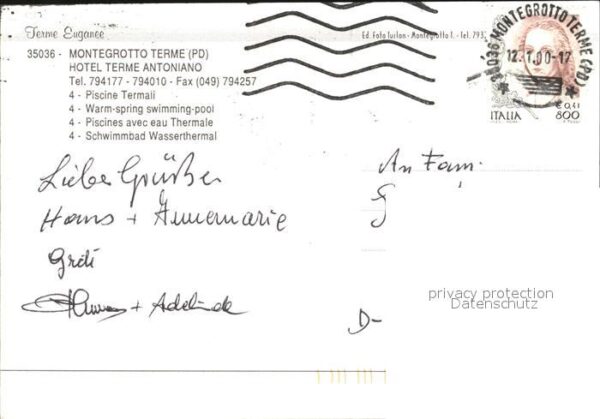 Terme Euganee
35036 - MONTEGROTTO TERME (PD)
HOTEL TERME ANTONIANO
Tel. 794177 - 794010 - Fax (049) 794257
4 - Piscine Termali
4 - Warm-spring swimming-pool
4 - Piscines avec eau Thermale
4 - Schwimmbad Wasserthermal
Ed. Foto Turlon - Montegrotto T. - Tel. 793
35036 MONTEGROTTO TERME (PD)
12.1.00-17
ITALIA
€ 0,41
800
Liebe Grüßer
Hans + Annemarie
Greti
+ Adelinde
An Fam.
D-
privacy protection
Datenschutz